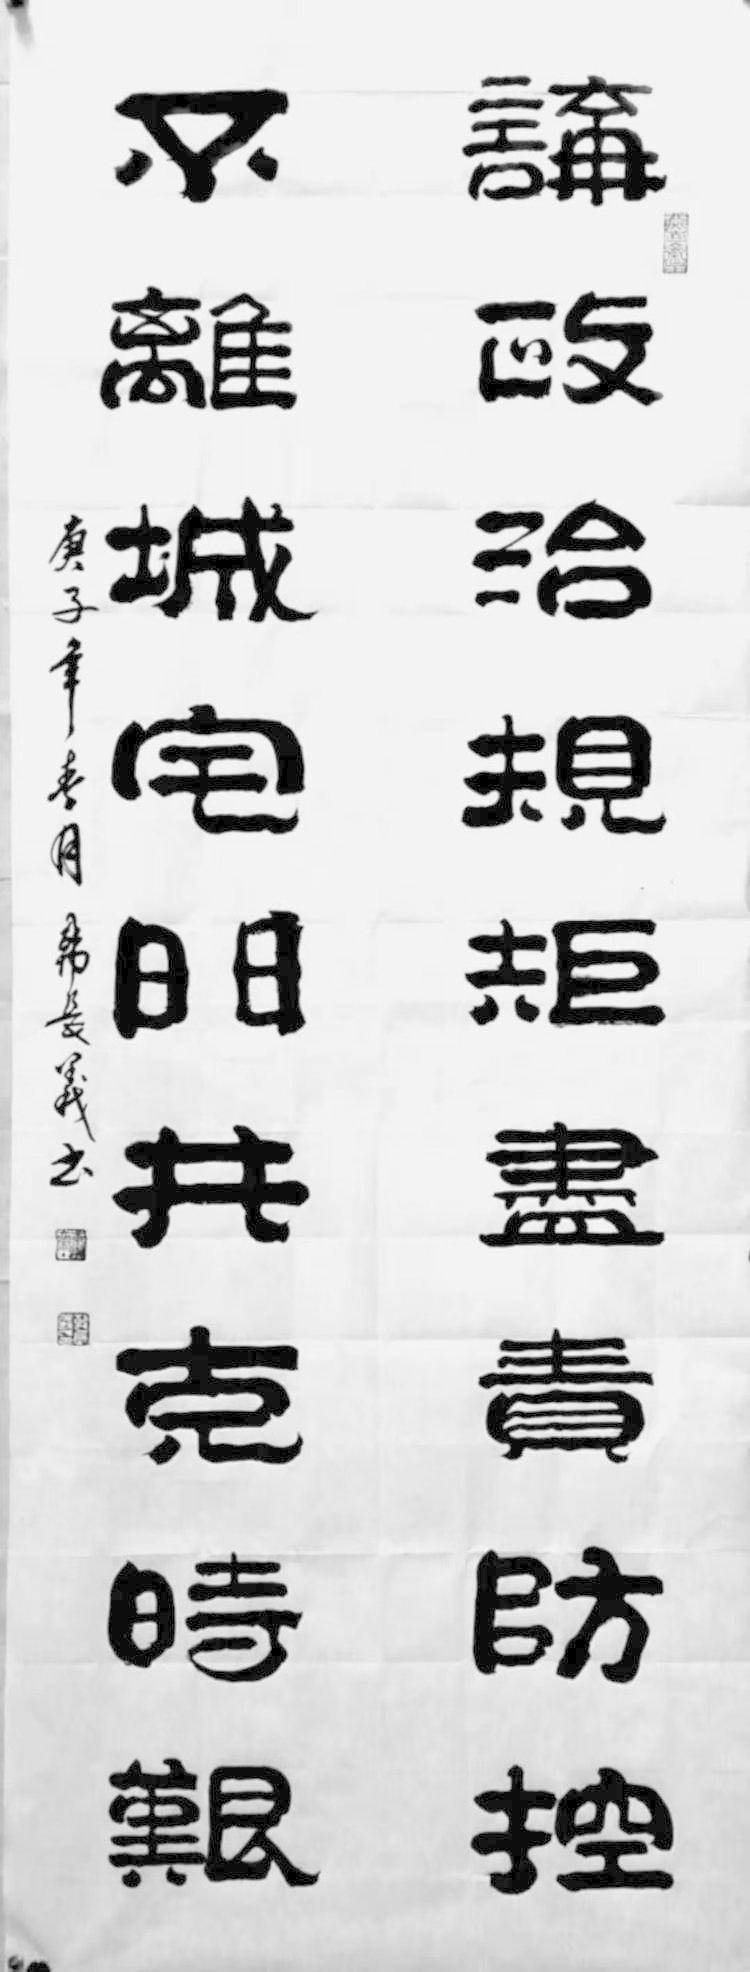 講政治規矩盡責防控
不離城宅門共克時艱
庚子年春月 長義书